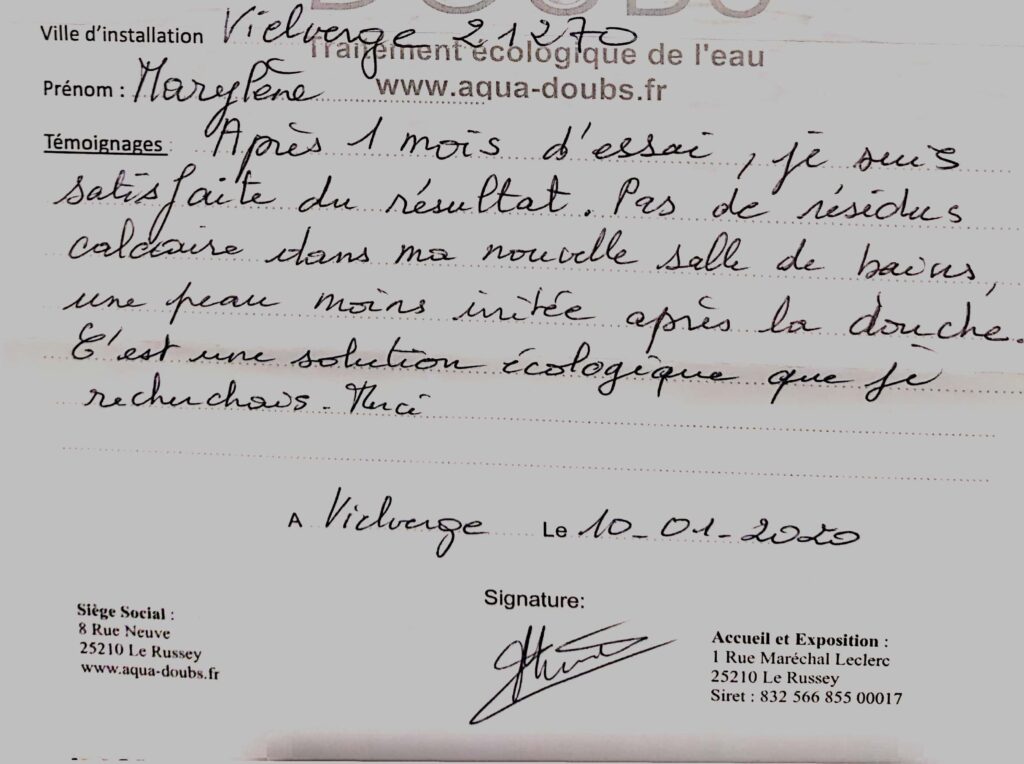 DOUBS
Ville d'installation Vielverge 21270
Traitement écologique de l'eau
Prénom : Marylène
www.aqua-doubs.fr
Témoignages : Après 1 mois d'essai, je suis
satisfaite du résultat. Pas de résidus
calcaire dans ma nouvelle salle de bains,
une peau moins irritée après la douche.
C'est une solution écologique que je
recherchais. Merci
A Vielverge Le 10-01-2020
Signature:
Siège Social :
8 Rue Neuve
25210 Le Russey
www.aqua-doubs.fr
Accueil et Exposition :
1 Rue Maréchal Leclerc
25210 Le Russey
Siret : 832 566 855 00017